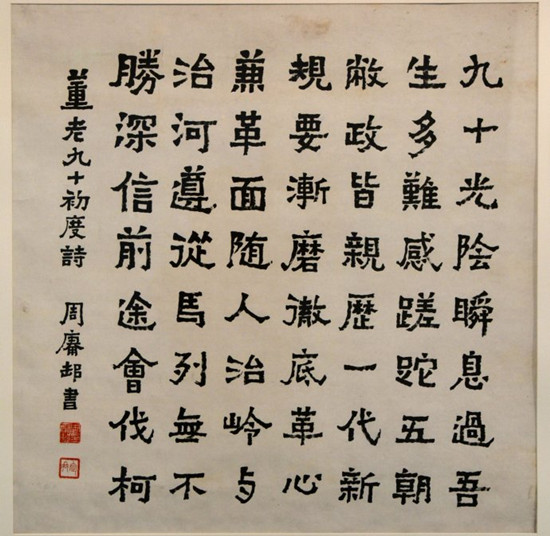 九十光陰瞬息過吾
生多難感蹉跎五朝
敝政皆親歷一代新
規要漸磨徹底革心
兼革面随人治岭与
治河遵從馬列無不
勝深信前途會伐柯
董老九十初度詩 周廉邨書